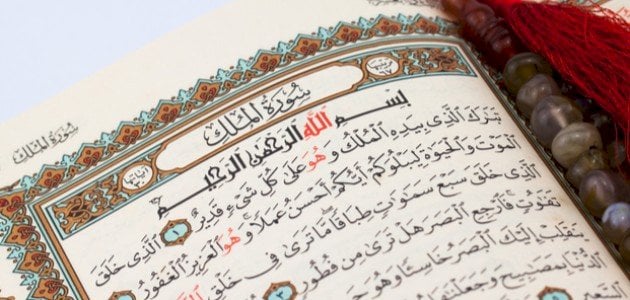 سُورَةُ المُلْكِ
سُورَةُ المُلْكِ
بِسْمِ اللَّهِ الرَّحْمَٰنِ الرَّحِيمِ
تَبَٰرَكَ الَّذِي بِيَدِهِ الْمُلْكُ وَهُوَ عَلَىٰ كُلِّ شَيْءٍ قَدِيرٌ ١ الَّذِي خَلَقَ
الْمَوْتَ وَالْحَيَوٰةَ لِيَبْلُوَكُمْ أَيُّكُمْ أَحْسَنُ عَمَلًا وَهُوَ الْعَزِيزُ الْغَفُورُ
الَّذِي خَلَقَ سَبْعَ سَمَٰوَٰتٍ طِبَاقًا مَّا تَرَىٰ فِي خَلْقِ
تَفَٰوُتٍ فَارْجِعِ الْبَصَرَ هَلْ تَرَىٰ مِن فُطُورٍ ٣
يَنقَلِبْ إِلَيْكَ الْبَصَرُ خَاسِئًا وَهُوَ
الدُّنْيَا بِمَصَٰبِيحَ وَجَعَلْنَٰهَا